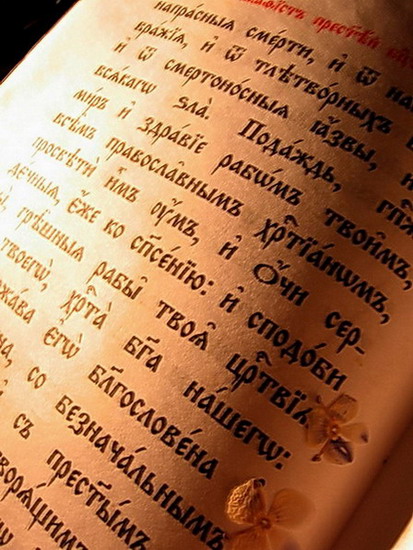 прест҃ѣ́й
напра́сныѧ сме́рти, и҆ ѿ на
вра́жїѧ, и҆ ѿ тлѣтво́рныхъ
и҆ ѿ смертоно́сныѧ ꙗ҆́звы, и҆
всѧ́кагѡ ѕла̀. Пода́ждь,
ми́ръ и҆ здра́вїе рабѡ́мъ твои̑мъ,
всѣ̑мъ правосла̑внымъ хрⷭ҇тїа́нѡмъ,
просвѣтѝ и҆̀мъ ᲂу҆́мъ, и҆ ѻ҆́чи сер-
де́чныѧ, є҆́же ко спⷭ҇е́нїю: и҆ сподо́би
ы̀, грѣ̑шныѧ рабы̑ твоѧ̑ црⷭ҇твїѧ
твоегѡ̀, хрⷭ҇та̀ бг҃а на́шегѡ:
жа́ва є҆гѡ̀ бл҃гослове́на
на, со безнача́льнымъ
съ прест҃ы́мъ
творѧ́щимъ